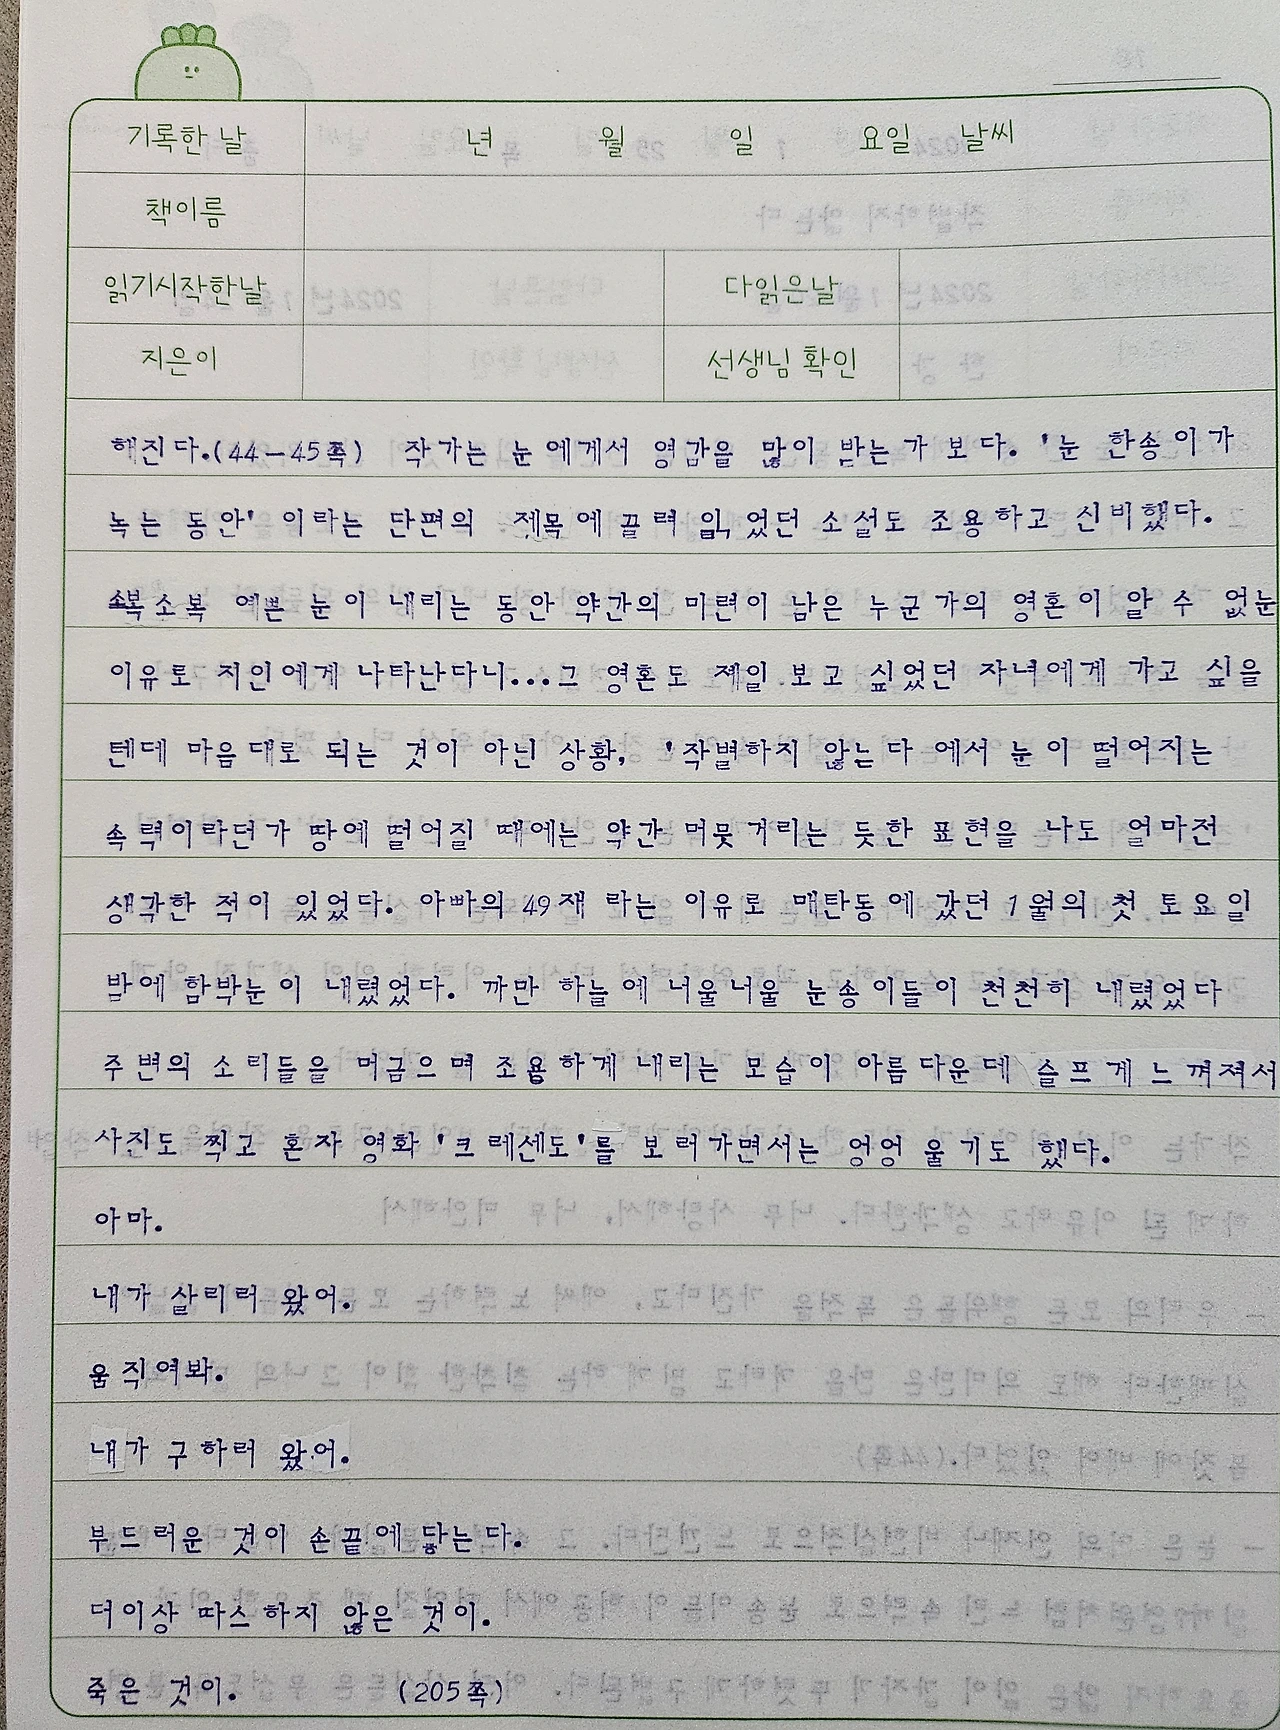 기록한 날 년 월 일 요일 날씨
책이름
읽기시작한날 다읽은날
지은이 선생님 확인
해진다.(44-45쪽) 작가는 눈에게서 영감을 많이 받는가 보다. '눈 한송이가
녹는 동안' 이라는 단편의 제목에 끌려 읽었던 소설도 조용하고 신비했다.
소복소복 예쁜 눈이 내리는 동안 약간의 미련이 남은 누군가의 영혼이 알 수 없는
이유로 지인에게 나타난다니...그 영혼도 제일 보고 싶었던 자녀에게 가고 싶을
텐데 마음대로 되는 것이 아닌 상황, '작별하지 않는다 에서 눈이 떨어지는
속력이라던가 땅에 떨어질 때에는 약간 머뭇거리는 듯한 표현을 나도 얼마전
생각한 적이 있었다. 아빠의 49재 라는 이유로 매탄동에 갔던 1월의 첫 토요일
밤에 함박눈이 내렸었다. 까만 하늘에 너울너울 눈송이들이 천천히 내렸었다
주변의 소리들을 머금으며 조용하게 내리는 모습이 아름다운데 슬프게 느껴져서
사진도 찍고 혼자 영화 '크레센도'를 보러가면서는 엉엉 울기도 했다.
아마.
내가 살리러 왔어.
움직여봐.
내가 구하러 왔어.
부드러운 것이 손끝에 닿는다.
더이상 따스하지 않은 것이.
죽은 것이. (205쪽)